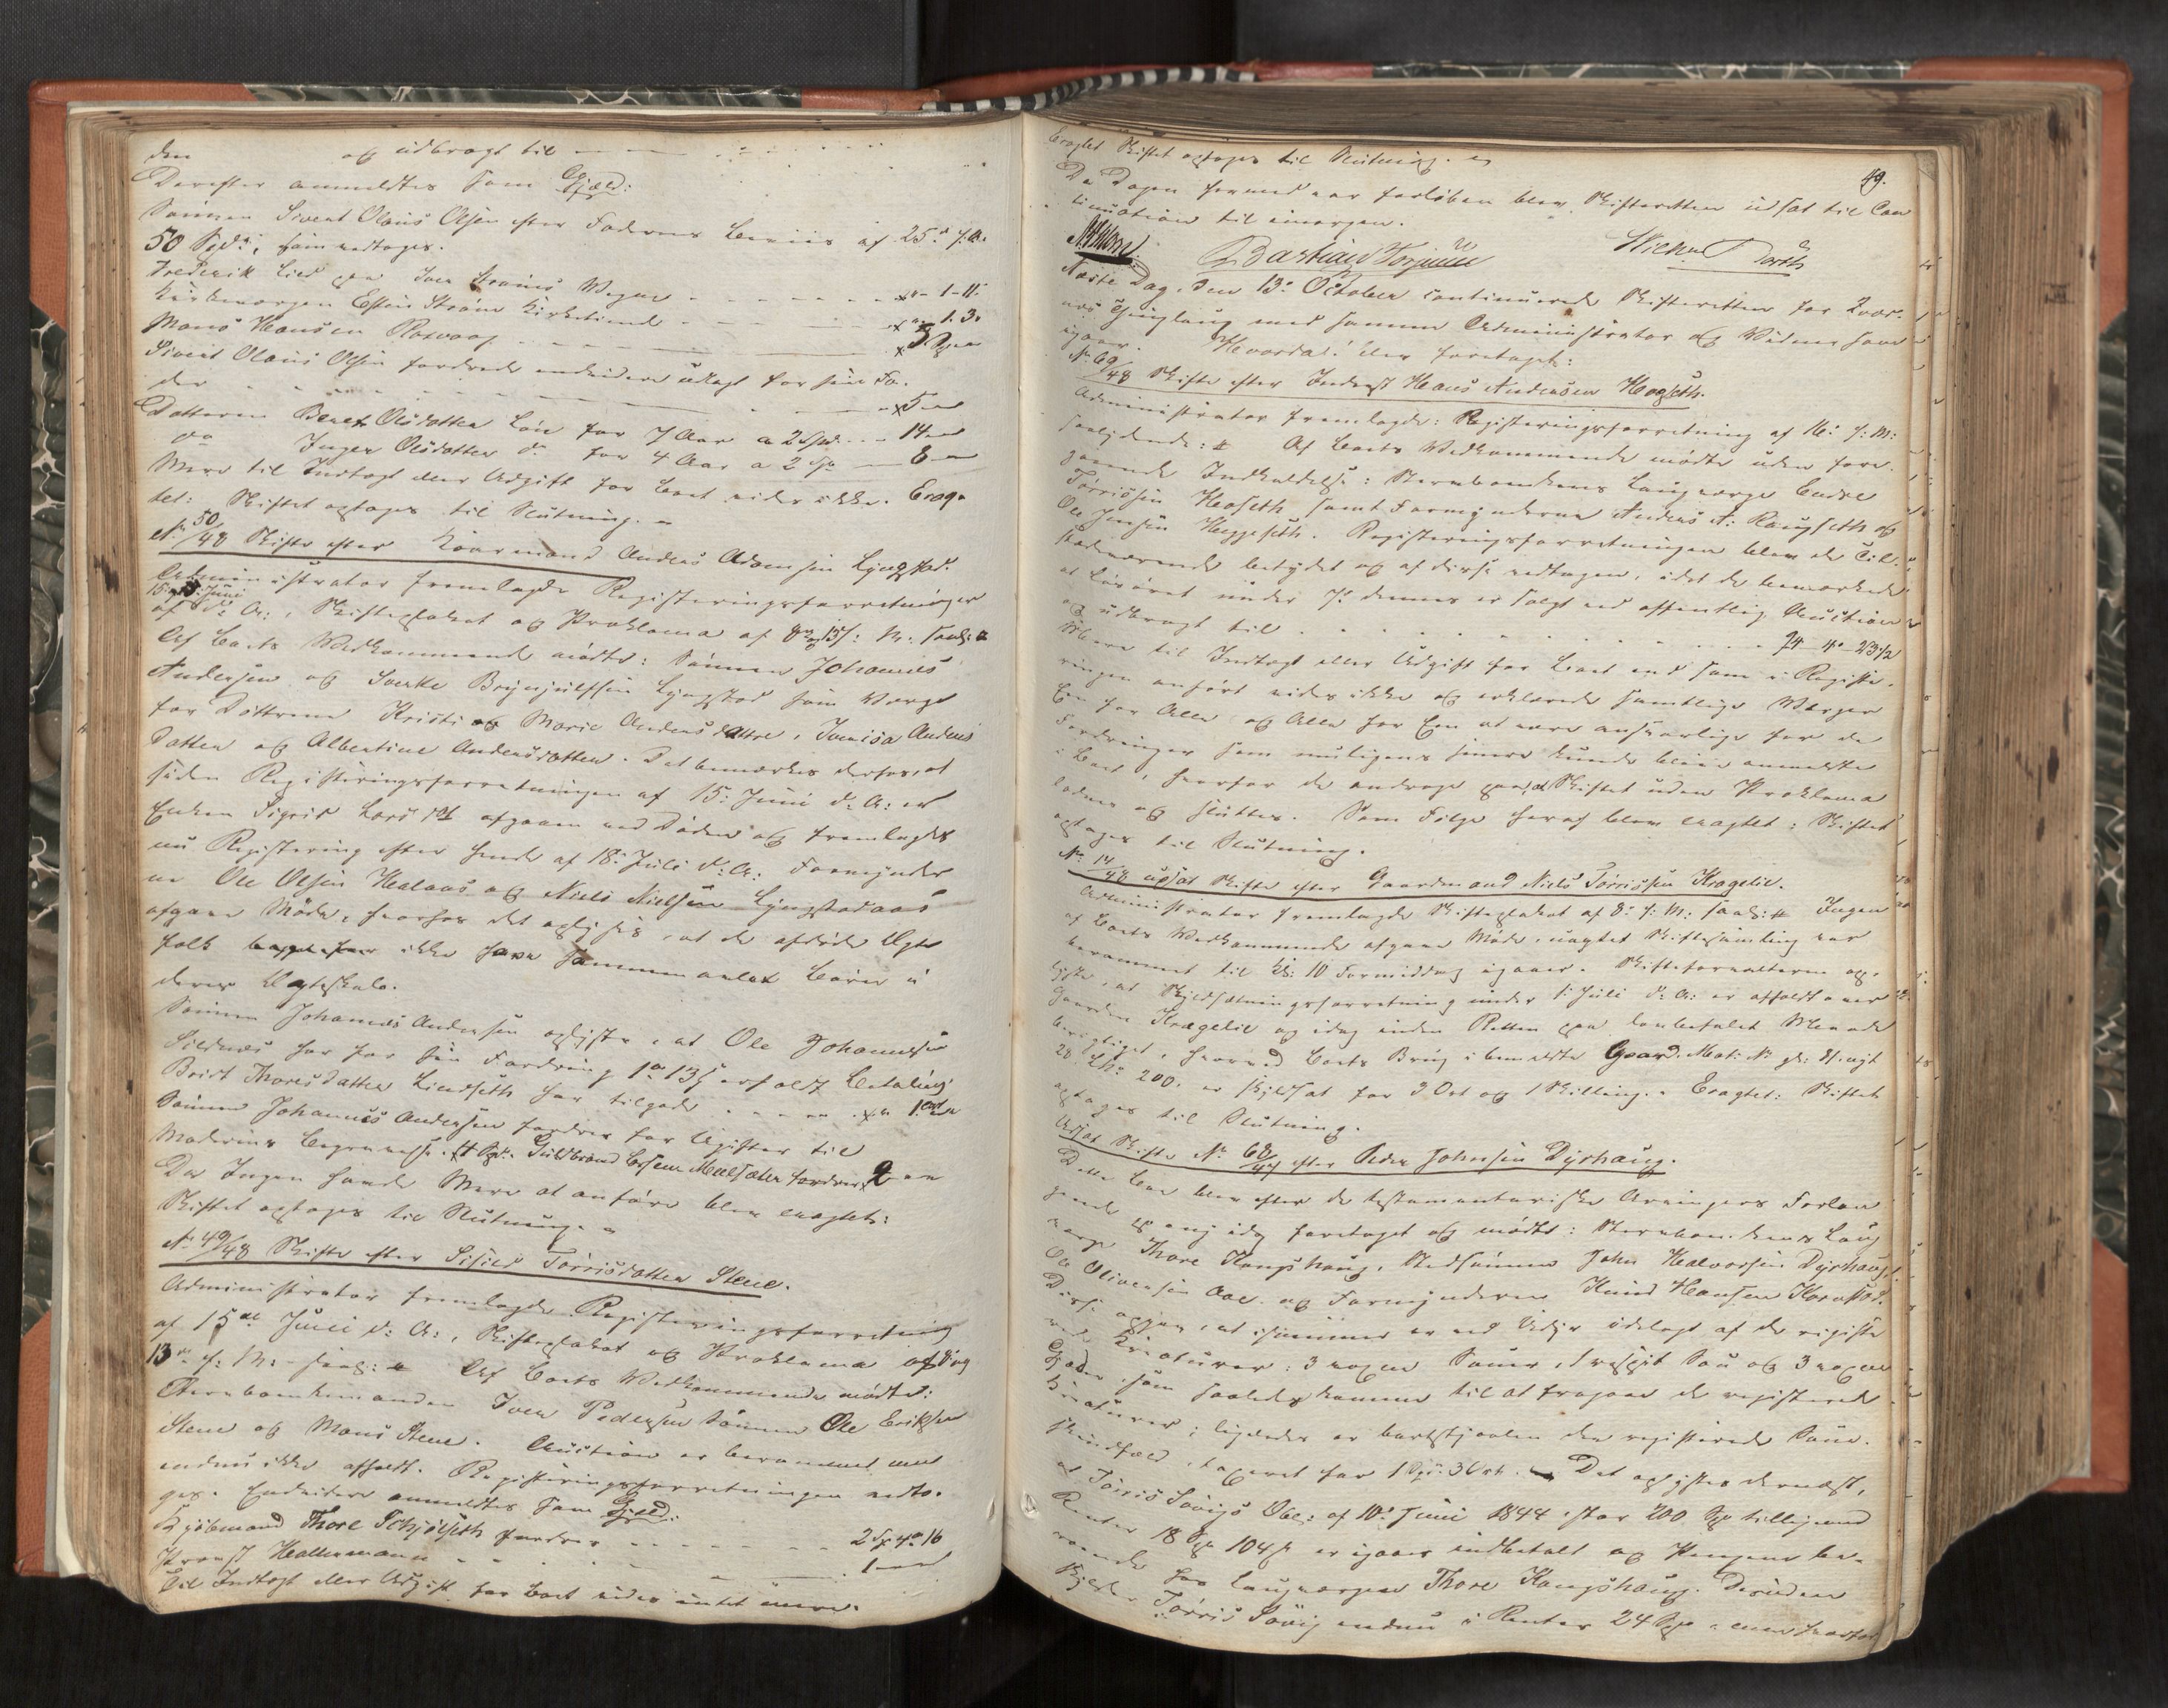 den og udbragt til
Derefter anmeldtes som Gjæld:
Sønnen Sivert Olaus Olsen efter Faderens Beviis af 25d f. A.
50 Spd, som vedtoges.
Frederik Lied paa Iver Strøms Vegne - 1 - 11.
Kirkeværgen Esten Strøm Kirketiende 1. 3.
Mons Hansen Roxvaag 3
Sivert Olaus Olsen fordrede endvidere udlagt for sin Fa-
der 5
Datteren Beret Olsdatter Løn for 7 Aar a 2 Spd 14
do Inger Olsdatter do for 4 Aar a 2 Spd 8
Mere til Indtægt eller Udgift for Boet vides ikke. Erag-
tet: Skiftet optages til Slutning.
No 50/48 Skifte efter Kaarmand Anders Adamsen Lyngstad.
Administrator fremlagde Registeringsforretninger
af 15 Juni d: A:, Skifteplakat og Proklama af 8 og 13 f: M: saal:
Af Boets Vedkommende mødte: Sønnen Johannes
Andersen og Sverke Brynjulfsen Lyngstad som Værge
for Døttrene Kristi og Marie Andersdattre, Lovisa Anders
datter og Albertine Andersdatter. Det bemærkes derhos, at
siden Registeringsforretningen af 15: Juni d: A: er
Enken Sigrid Larsdtr afgaaen ved Døden og fremlagdes
nu Registering efter hende af 18: Juli d: A: Formynder
ne Ole Olsen Halaas og Niels Nielsen Lyngstadaas
afgaar Møde, hvorhos det oplyses, at de afdøde Ægte
folk ikke have sammenavlet Børn i
deres Ægteskab.
Sønnen Johannes Andersen oplyste, at Ole Johannesen
Sildnes har for sin Fordring 1 13 erholdt Betaling
Berit Thoresdatter Lindseth har tilgode 1
Sønnen Johannes Andersen fordrer for Udgifter til
Moderens Begravelse. Guldbrand Malsæter fordrer 2
Da Ingen havde Mere at anføre blev eragtet:
Skiftet optages til Slutning.
No 49/48 Skifte efter Sisiel Tørrisdatter Stene.
Administrator fremlagde Registeringsforretning
af 15de Juni d: A:, Skifteplakat og Proklama af 8 og
13 f: M: saal: Af Boets Vedkommende mødte:
Stervboenkemanden Iver Pedersen Sønnen Ole Eriksen
Stene og Mons Stene. Auction er berammet men
endnu ikke afholdt. Registeringsforretningen vedto-
ges. Endvidere anmeldtes som Gjæld:
Kjøbmand Thore Schjølseth fordrer 2 4 16
Provst Hallermann 1
Til Indtægt eller Udgift for Boet vides intet mere.
49.
Eragtet Skiftet optages til Slutning.
Da Dagen hermed var forløben blev Skifteretten udsat til Con
tinuation til imorgen.
Bastian Torjulsen
Næste Dag, den 13: October continuerede Skifteretten for Qvær-
næs Thinglaug med samme Administrator og Vidner som
igaar. Hvorda! blev foretaget:
No 69/48 Skifte efter Inderst Hans Andersen Hogseth.
Administrator fremlagde: Registeringsforretning af 16: f: M:
saalydende: Af Boets Vedkommende mødte uden fore-
gaaende Indkaldelse: Stervboenkens Laugværge Endre
Tørrissen Hoseth samt Formynderne Anders A: Raugseth og
Ole Jensen Heggeseth. Registeringsforretningen blev de Til-
stædeværende betydet og af disse vedtagen, idet de bemærkede
at Løsøret under 7d dennes er solgt ved offentlig Auction
og udbragt til 74 - 4 - 23 1/2
Mere til Indtægt eller Udgift for Boet end som i Registe-
ringen anført vides ikke og erklærede samtlige Værger
En for Alle og Alle for Een at være ansvarlige for de
Fordringer som muligens senere kunde blive anmeldte
i Boet, hvorfor de androge paa, at Skiftet uden Proklama
lades og sluttes. Som Følge heraf blev eragtet: Skiftet
optages til Slutning.
No 14/48 udsat Skifte efter Gaardmand Niels Tørrissen Kragelie.
Administrator fremlagde Skifteplakat af 8: f: M: saal: Ingen
af Boets Vedkommende afgaar Møde, uagtet Skiftesamling var
berammet til Kl: 10 Formiddag igaar. Skifteforvalteren op-
lyste, at Skjeldsætningsforretning under 1: Juli d: A: er afholdt over
Gaarden Kragelie og idag inden Retten paa lovbefalet Maade
berigtiget, hvorved Boets Brug i bemeldte Gaard Mat: No gl: 81 nyt
28 Lb. 200. er skyldsat for 3 Ort og 1 Skilling. Eragtet: Skiftet
optages til Slutning.
Udsat Skifte No 68/47 efter Peder Johnsen Dyrhaug.
Dette Boe blev efter de testamentariske Arvingers Forlan
gende paany idag foretaget og mødte: Stervboenkens Laug
værge Thore Kongshaug, Stedsønnen John Halvorsen Dyrhaug,
Ole Olivensen Aae og Formynderen Knud Hansen Hornstad.
Disse opgav, at isommer er ved Udyr ødelagt af de registe
rede Kreaturer: 3 voxne Sauer, 1 Sau og 3 voxne
Geder, som saaledes komme til at fragaae de registerede
Kreaturer; ligeledes er bortstjaalen den registerede Saue-
skindfæld, taxeret for 1 Spd: 3 Ort. Det oplystes dernæst,
at Tørris Søvigs Obl: af 10: Juni 1844 stor 200 Spd tilligemed
Renter 18 Spd 104 s er igaar indbetalt og Pengene be-
roende hos Laugværgen Thore Kongshaug. Desuden
skylder Tørris Søvig endnu i Renter 24 Spd